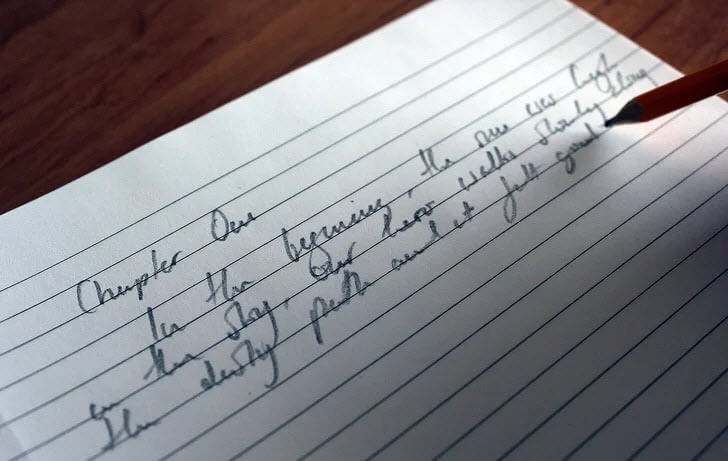 Chapter One
In the beginning, the sun was high
in the sky. Our hero walks slowly along
the dusty path and it felt good